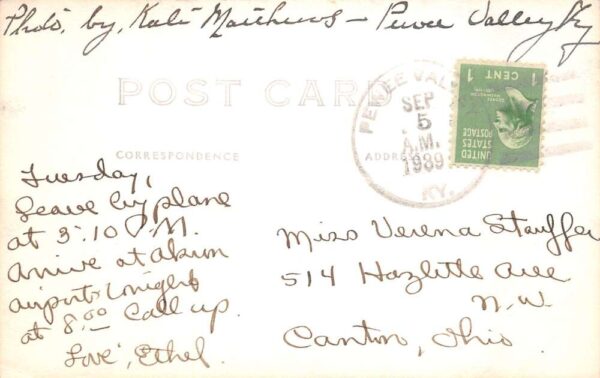 Photo, by, Kate Matthews – Pewee Valley Ky
POST CARD
CORRESPONDENCE
ADDRE
PEWEE VAL
SEP
5
A.M.
1939
KY.
1 CENT 1
UNITED
STATES
POSTAGE
Tuesday,
Leave by plane
at 3:10 P.M.
Arrive at Akron
airport tonight
at 8:00 Call up.
Love, Ethel.
Miss Verena Stauffer
514 Hazlette Ave
N.W.
Canton, Ohio.